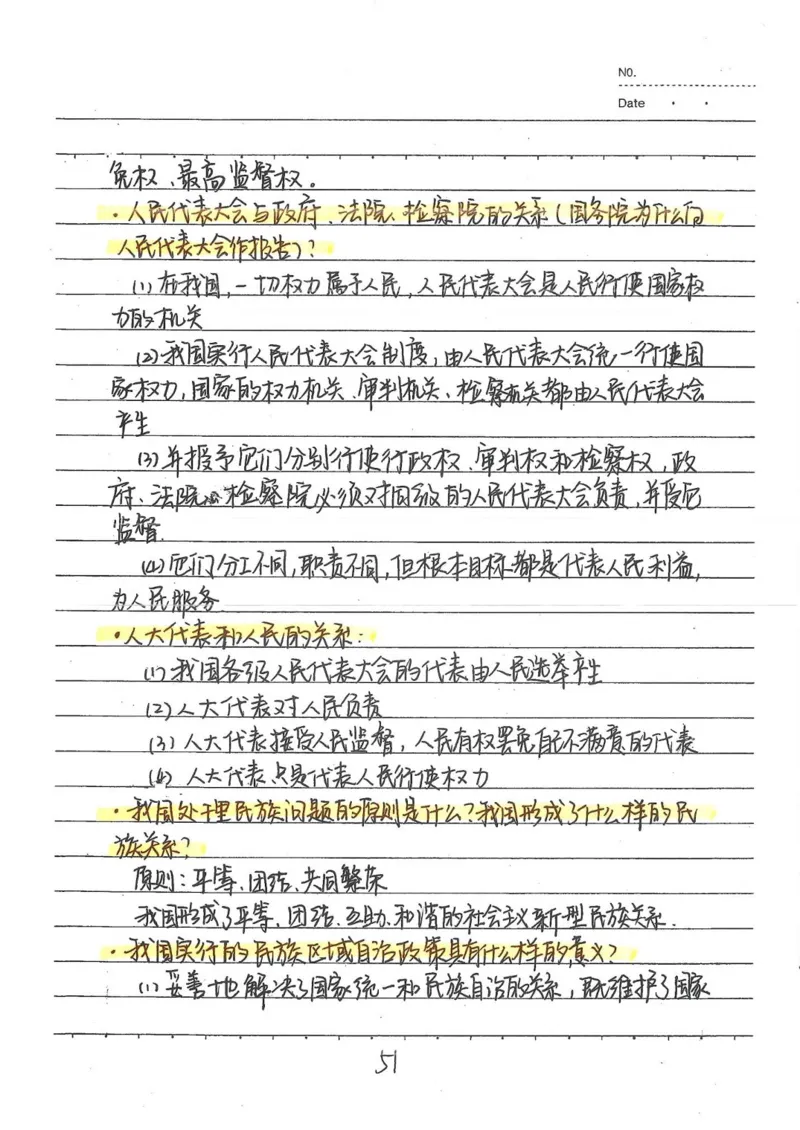 NO.
Date
免权、最高监督权。
·人民代表大会与政府、法院、检察院的关系(国务院为什么向
人民代表大会作报告)?
(1)在我国,一切权力属于人民,人民代表大会是人民行使国家权
力的机关
(2)我国实行人民代表大会制度,由人民代表大会统一行使国
家权力,国家的权力机关、审判机关、检察机关都由人民代表大会
产生
(3)并授予它们分别行使行政权、审判权和检察权,政
府、法院、检察院必须对同级的人民代表大会负责,并受它
监督.
(4)它们分工不同,职责不同,但根本目标都是代表人民利益,
为人民服务
·人大代表和人民的关系:
(1)我国各级人民代表大会的代表由人民选举产生
(2)人大代表对人民负责
(3)人大代表接受人民监督,人民有权罢免自己不满意的代表
(4)人大代表只是代表人民行使权力
·我国处理民族问题的原则是什么?我国形成了什么样的民
族关系?
原则:平等、团结、共同繁荣
我国形成了平等、团结、互助、和谐的社会主义新型民族关系.
·我国实行的民族区域自治政策具有什么样的意义?
(1)妥善地解决了国家统一和民族自治的关系,既维护了国家
51